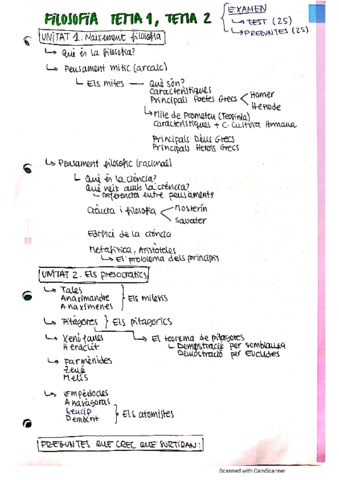 FILOSOFIA TEMA 1, TEMA 2
EXAMEN
↳ TEST (25)
↳ PREGUNTES (25)
UNITAT 1. Naixement filosofia
↳ Què és la filosofia?
↳ Pensament mític (arcaic)
↳ Els mites — Què són?
Característiques
Principals Poetes Grecs
Homer
Hesíode
↳ Mite de Prometeu (Teogonia)
Característiques + C. Cultura Humana
Principals Déus Grecs
Principals Herois Grecs
↳ Pensament filosòfic (racional)
↳ Què és la ciència?
Què neix amb la ciència?
↳ Diferència entre pensaments
Ciència i filosofia
Mosterín
Savater
Edifici de la ciència
Metafísica, Aristòteles
↳ El problema dels principis
UNITAT 2. Els presocràtics
↳ Tales
Anaximandre
Anaxímenes
Els milesis
↳ Pitàgores } Els pitagòrics
↳ El teorema de pitàgores
↳ Demostració per semblança
Demostració per Euclides
↳ Xenòfanes
Heràclit
↳ Parmènides
Zenó
Melis
↳ Empèdocles
Anaxàgoras
Leucip
Demòcrit
Els atomistes
PREGUNTES QUE CREC QUE SORTIRAN:
Scanned with CamScanner